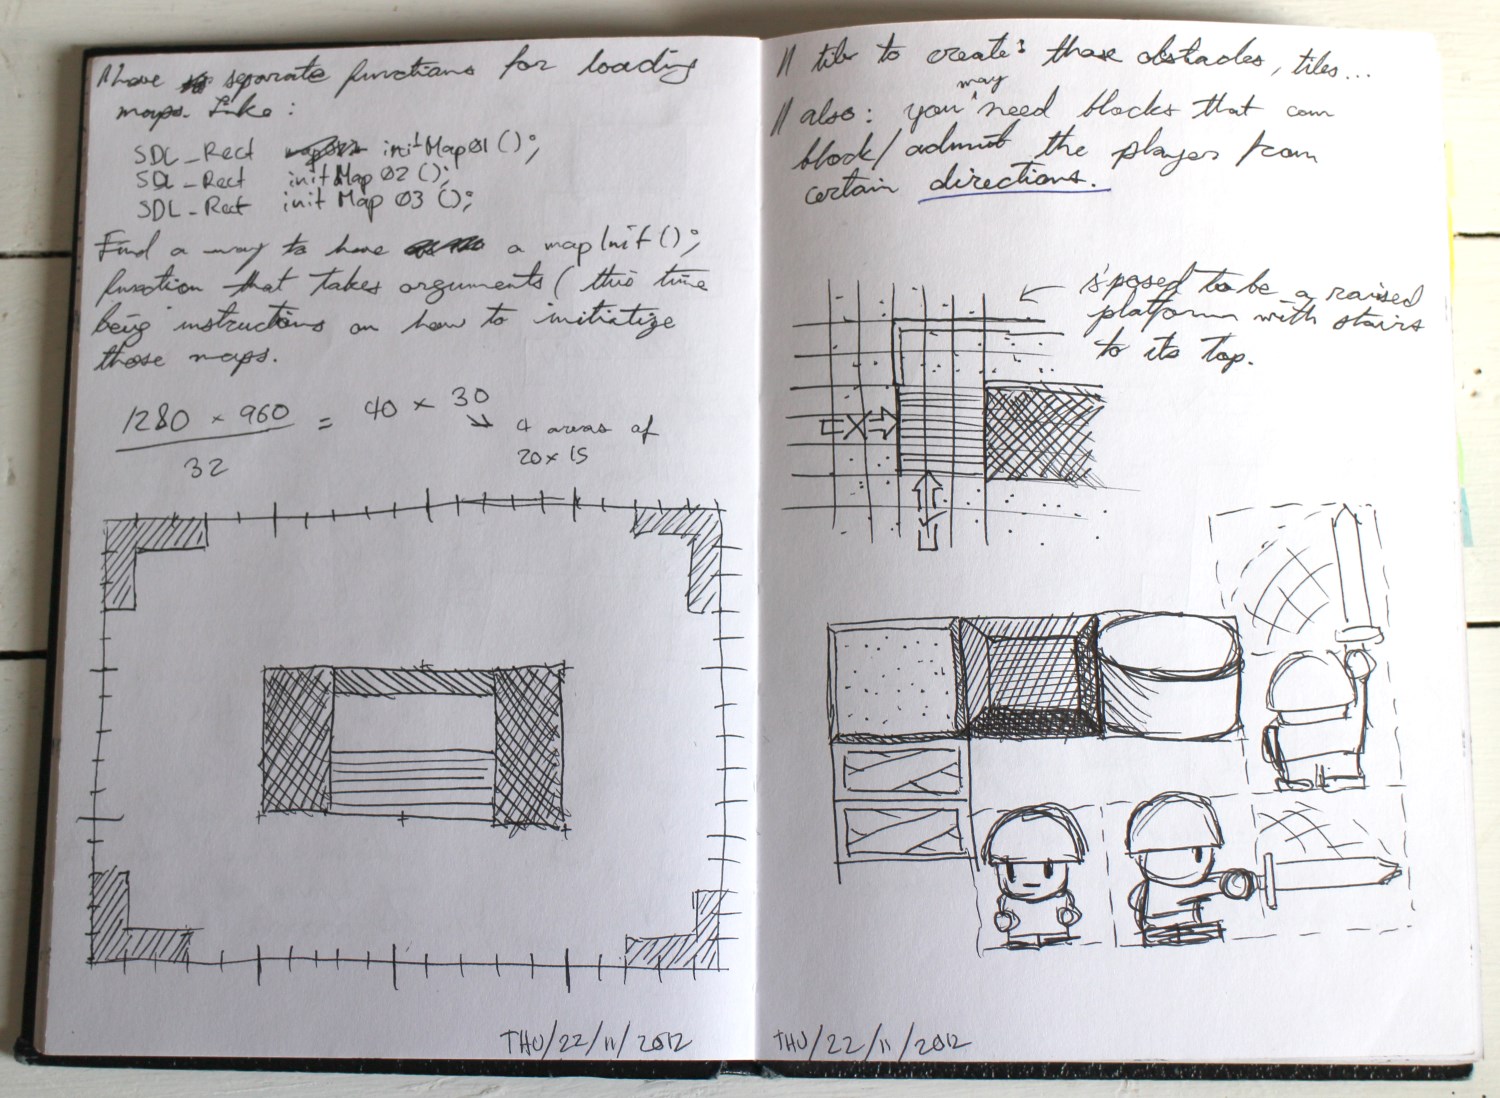 // have separate functions for loading
maps. Like:
SDL_Rect initMap01();
SDL_Rect initMap02();
SDL_Rect initMap03();
Find a way to have a mapInit();
function that takes arguments (this time
being instructions on how to initiatize
those maps.
1280 x 960 = 40 x 30
32
4 areas of
20x15
THU/22/11/2012
// to create: those obstacles, tiles...
may
// also: you need blocks that can
block/admit the player from
certain directions.
s'posed to be a raised
platform with stairs
to its top.
THU/22/11/2012